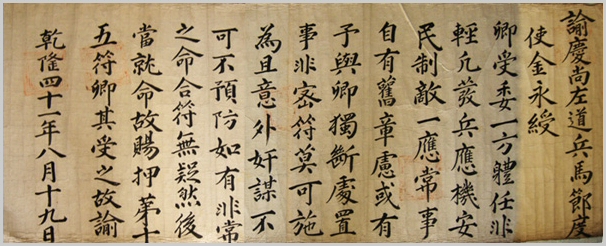 諭慶尚左道兵馬節度
使金永綬
卿受委一方體任非
輕凡發兵應機安
民制敵一應常事
自有舊章慮或有
予與卿獨斷處置
事非密符莫可施
為且意外奸謀不
可不預防如有非常
之命合符無疑然後
當就命故賜押第十
五符卿其受之故諭
乾隆四十一年八月十九日